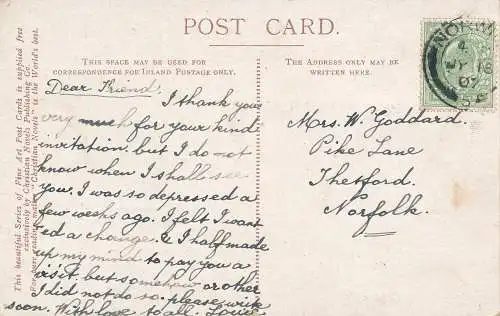 POST CARD.
THIS SPACE MAY BE USED FOR
CORRESPONDENCE FOR INLAND POSTAGE ONLY.
THE ADDRESS ONLY MAY BE
WRITTEN HERE.
This beautiful Series of Fine Art Post Cards is supplied free
exclusively by Christian Novels Publishing Co.
"Christian Novels" is the World's best.
Dear Friend,
I thank you
very much for your kind
invitation. but I do not
know when I shall see
you. I was so depressed a
few weeks ago. I felt I want
ed a change. & I half made
up my mind to pay you a
visit but somehow or other
I did not do so. please write
soon. With love to all. Louie
Mrs. W. Goddard.
Pike Lane
Thetford.
Norfolk.
NORW
4
JY 16
07